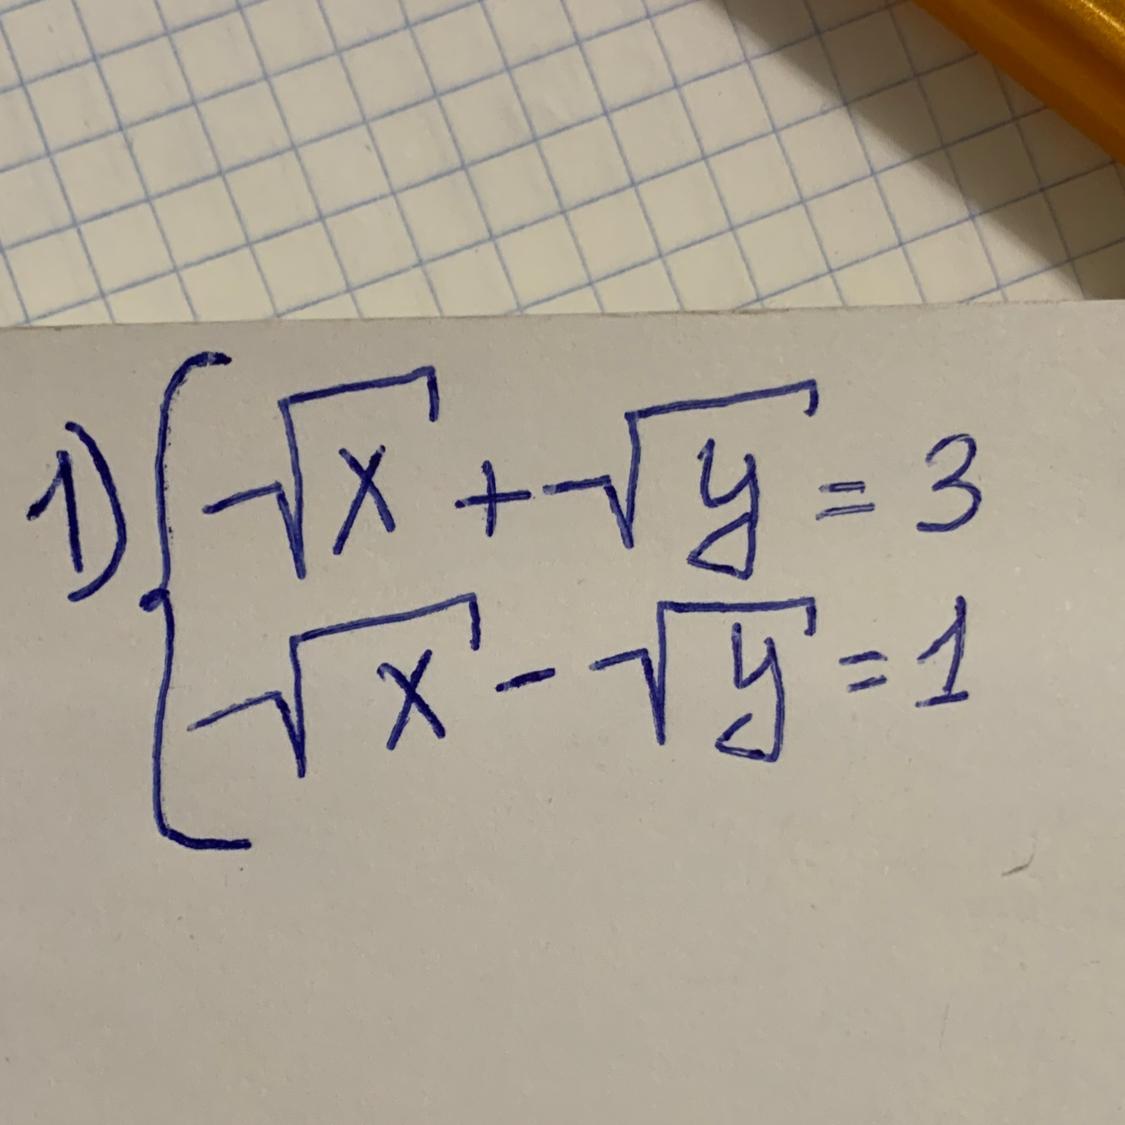 1) { √x + √y = 3
√x - √y = 1